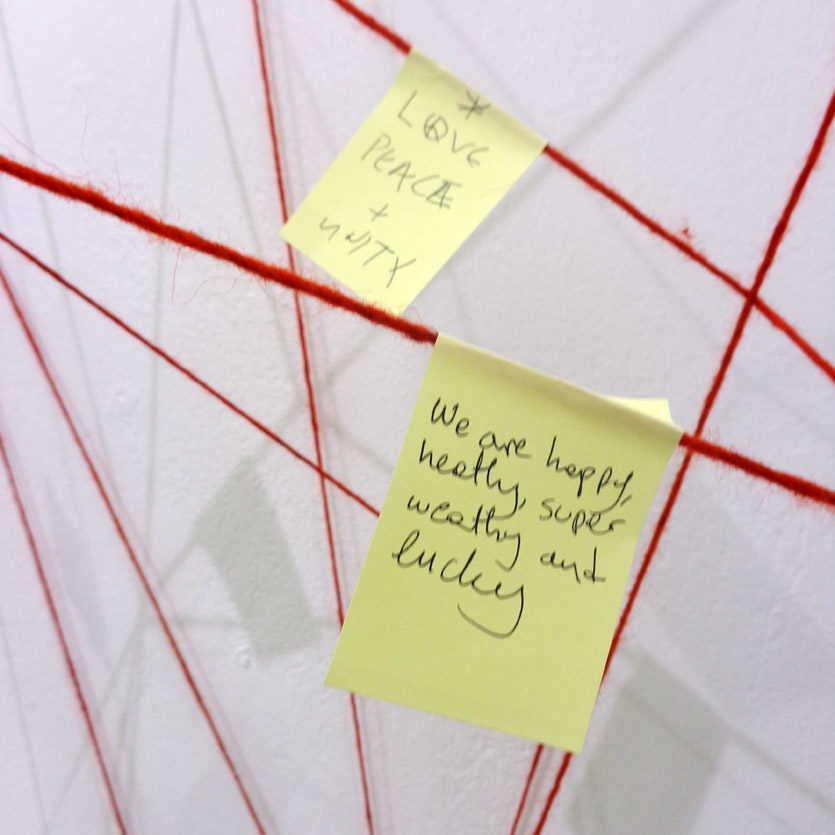 *
LOVE
PEACE
+
UNITY
We are happy,
heathy, super
weathy and
lucky